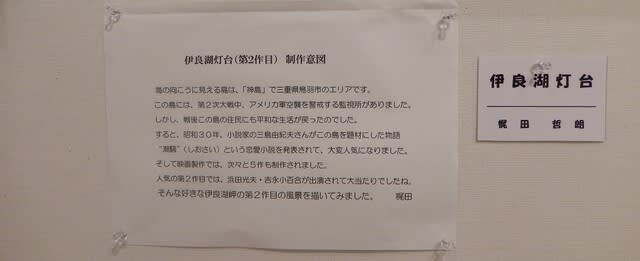 伊良湖灯台(第2作目) 制作意図
海の向こうに見える島は、「神島」で三重県鳥羽市のエリアです。
この島には、第2次大戦中、アメリカ軍空襲を警戒する監視所がありました。
しかし、戦後この島の住民にも平和な生活が戻ったのでした。
すると、昭和30年、小説家の三島由紀夫さんがこの島を題材にした物語
"潮騒"(しおさい)という恋愛小説を発表されて、大変人気になりました。
そして映画製作では、次々と5作も制作されました。
人気の第2作目では、浜田光夫・吉永小百合が出演されて大当たりでしたね。
そんな好きな伊良湖岬の第2作目の風景を描いてみました。 梶田
伊良湖灯台
梶田 哲朗